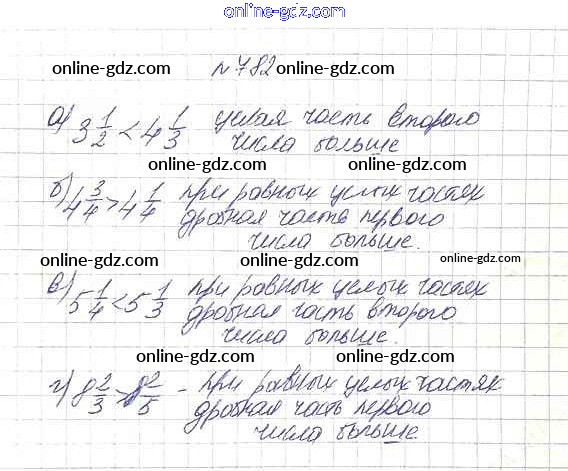 online-gdz.com
online-gdz.com №782 online-gdz.com
а) 3 1/2 < 4 1/3 целая часть второго
числа больше
online-gdz.com online-gdz.com
online-gdz.com
б) 4 3/4 > 4 1/4 при равных целых частях
дробная часть первого
числа больше.
online-gdz.com online-gdz.com online-gdz.com
в) 5 1/4 < 5 1/3 при равных целых частях
дробная часть второго
числа больше.
online-gdz.com
г) 8 2/3 > 8 2/5 - при равных целых частях
дробная часть первого
числа больше.
online-gdz.com online-gdz.com